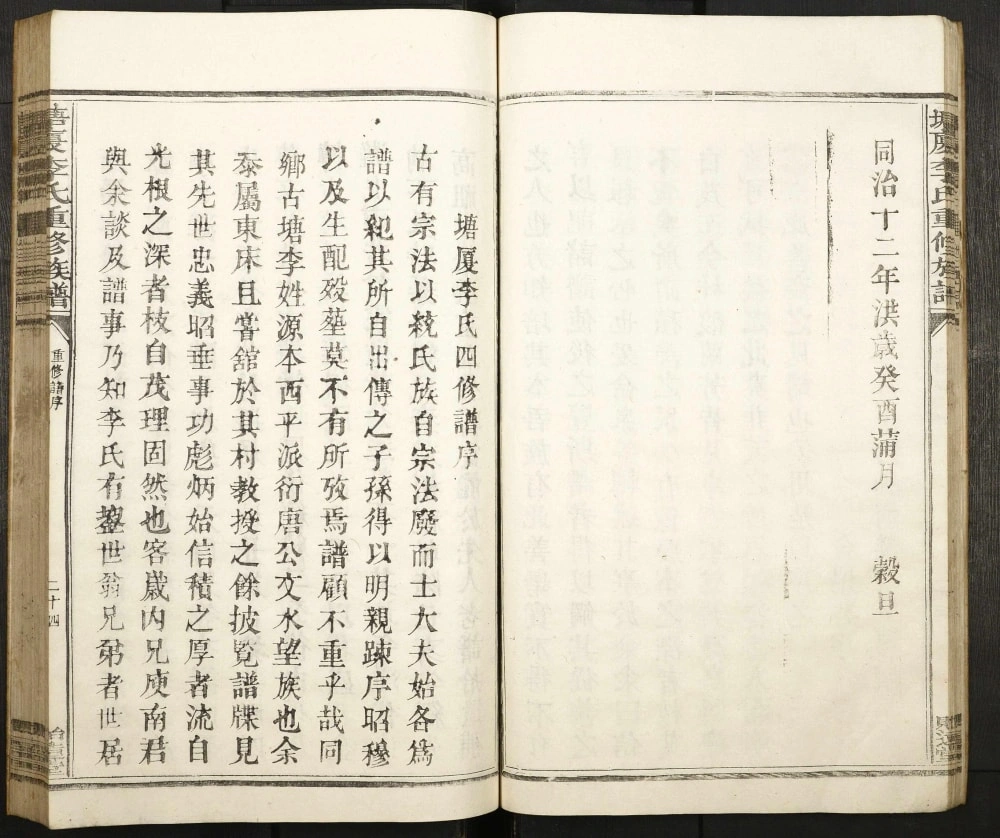 同治十二年洪歲癸酉蒲月　穀旦
塘厦李氏重修族譜
塘厦李氏四修譜序
古有宗法以統氏族自宗法廢而士大夫始各爲
譜以紀其所自出傳之子孫得以明親踈序昭穆
以及生配殁塟莫不有所攷焉譜顧不重乎哉同
鄉古塘李姓源本西平派衍唐公文水望族也余
忝屬東床且嘗舘於其村教授之餘披覧譜牒見
其先世忠義昭垂事功彪炳始信積之厚者流自
光根之深者枝自茂理固然也客歲内兄庾南君
與余談及譜事乃知李氏有鋆世翁兄弟者世居
塘厦李氏重修族譜
重修譜序
二十四